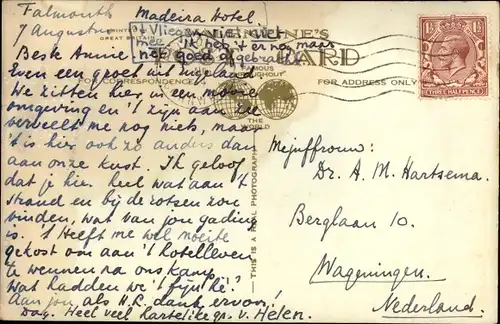 Falmouth
7 Augustus
Madeira Hotel
't Vliegen niet
met, ik heb 't er nog maar
niet goed afgebracht
PRINTED
GREAT BRITAIN
VALENTINE'S
CARD
FAMOUS
THROUGHOUT
THE
WORLD
FOR CORRESPONDENCE
FOR ADDRESS ONLY
THIS IS A REAL PHOTOGRAPH
THREE HALFPENCE
Beste Annie
Even een groet uit Engeland
We zitten hier in een mooie
omgeving en 't zijn aan zee
verveelt me nog niets, maar
't is hier ook zo anders dan
aan onze kust. Ik geloof
dat je hier heel wat aan 't
strand en bij de rotsen zou
vinden, wat van jou gading
is. 't Heeft me wel moeite
gekost om aan 't hotelleven
te wennen na ons kamp
Wat hadden we 't fijn hè!
Aan jou als H.L. dank ervoor!
Dag. Heel veel hartelijke gr. v. Helen.
Mejuffrouw:
Dr. A. M. Hartsema.
Berglaan 10.
Wageningen.
Nederland.